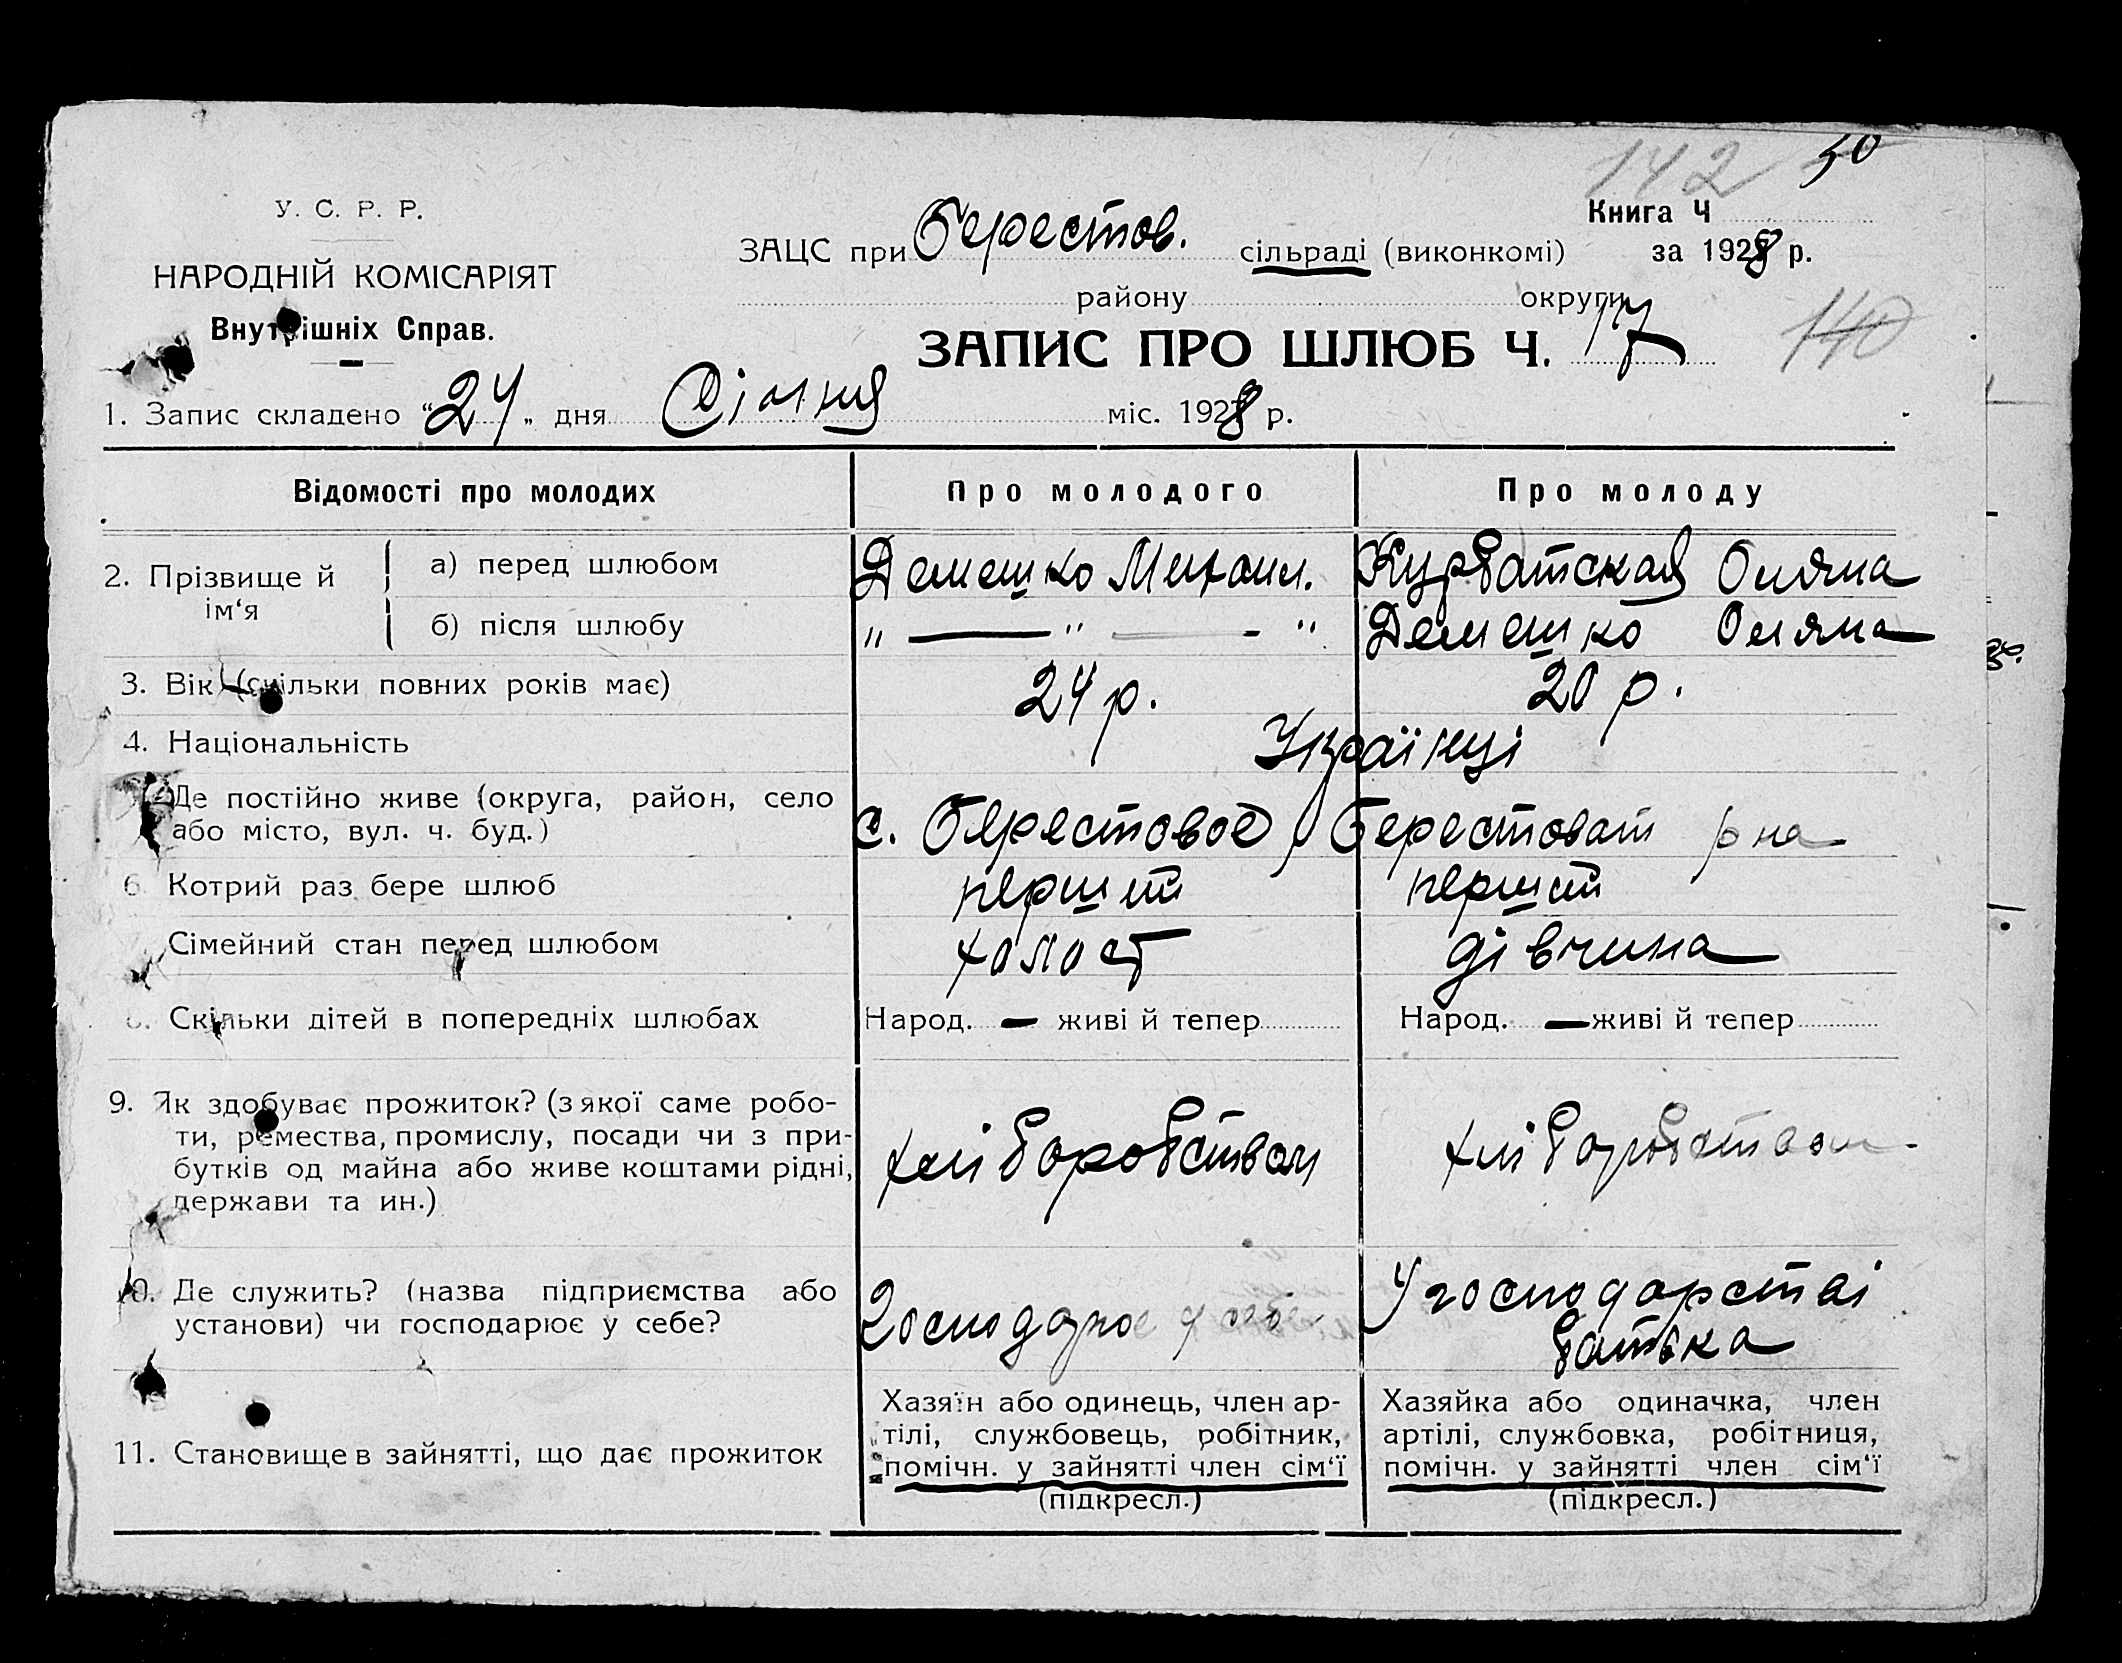 142 50
У. С. Р. Р.
НАРОДНІЙ КОМІСАРІЯТ
Внутрішніх Справ.
Книга Ч
ЗАЦС при Берестов. сільраді (виконкомі) за 1928 р.
району округи
ЗАПИС ПРО ШЛЮБ Ч. 17
140
1. Запис складено "24" дня Січня міс. 1928 р.
Відомості про молодих Про молодого Про молоду
2. Прізвище й ім'я
а) перед шлюбом Демешко Михаил. Курбатская Оляна
б) після шлюбу " — " — " Демешко Оляна
3. Вік (скільки повних років має) 24 р. 20 р.
4. Національність Українці
Де постійно живе (округа, район, село
або місто, вул. ч. буд.) с. Берестовое Берестоват р на
6. Котрий раз бере шлюб перший перший
Сімейний стан перед шлюбом холост дівчина
Скільки дітей в попередніх шлюбах Народ. — живі й тепер Народ. — живі й тепер
9. Як здобуває прожиток? (з якої саме робо-
ти, ремества, промислу, посади чи з при-
бутків од майна або живе коштами рідні,
держави та ин.)
хліборобством хліборобством
10. Де служить? (назва підприємства або
установи) чи господарює у себе?
Господарює у себе
У господарстві
батька
11. Становище в зайнятті, що дає прожиток
Хазяїн або одинець, член ар-
тілі, службовець, робітник,
помічн. у зайнятті член сім'ї
(підкресл.)
Хазяйка або одиначка, член
артілі, службовка, робітниця,
помічн. у зайнятті член сім'ї
(підкресл.)